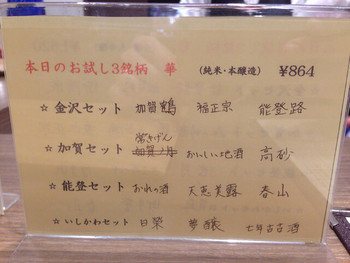 本日のお試し3銘柄 華 (純米・本醸造) ¥864
☆ 金沢セット 加賀鶴 福正宗 能登路
常きげん
☆ 加賀セット 加賀ノ井 おいしい地酒 高砂
☆ 能登セット おれの酒 天恵美露 春山
☆ いしかわセット 日榮 夢醸 七年古古酒